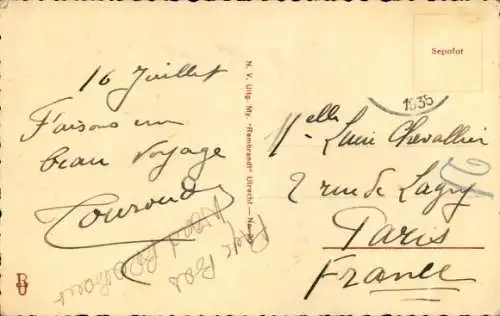 16 Juillet
Faisons un
beau voyage
N. V. Uitg. My. "Rembrandt" Utrecht
Sepofor
1935
Melle Chevallier
2 rue de Lagny
Paris
France